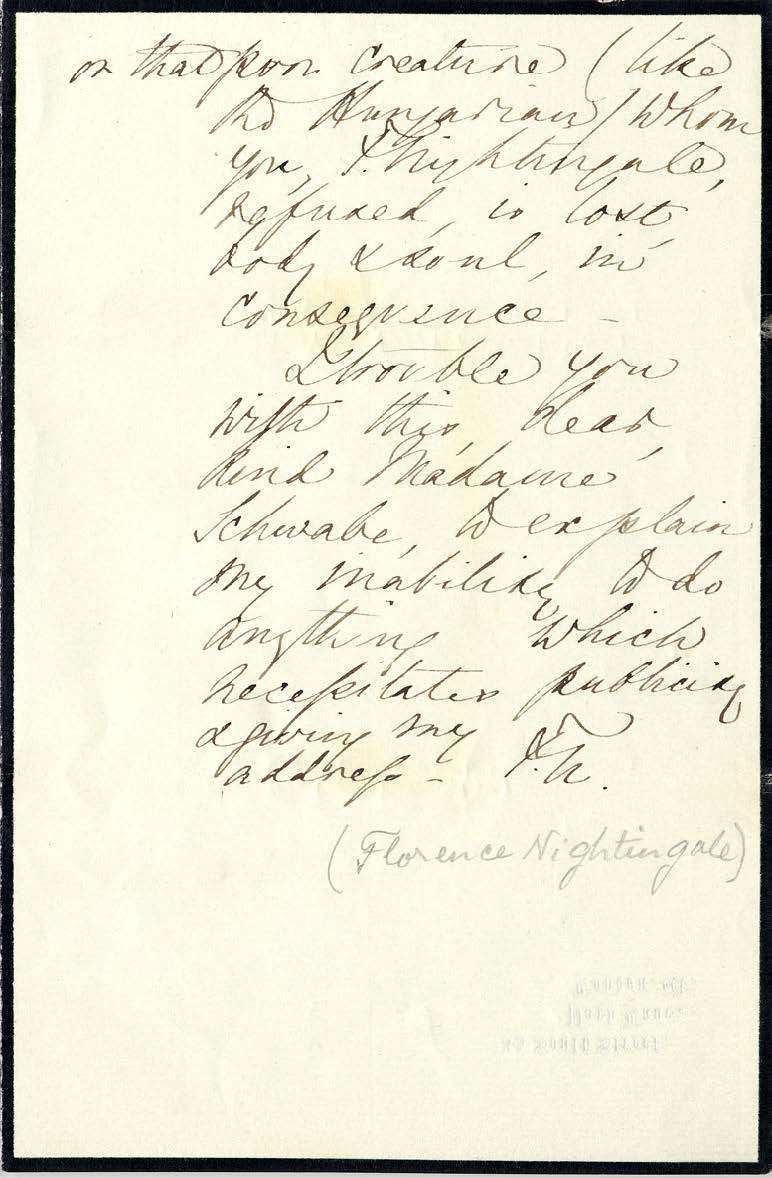 or that poor creature (like
the Hungarian) whom
you, F. Nightingale,
refused, is lost,
body & soul, in
consequence –
I trouble you
with this, dear,
kind Madame
Schwabe, to explain
my inability to do
anything which
necessitates publicity
& giving my
address – F.N.
(Florence Nightingale)